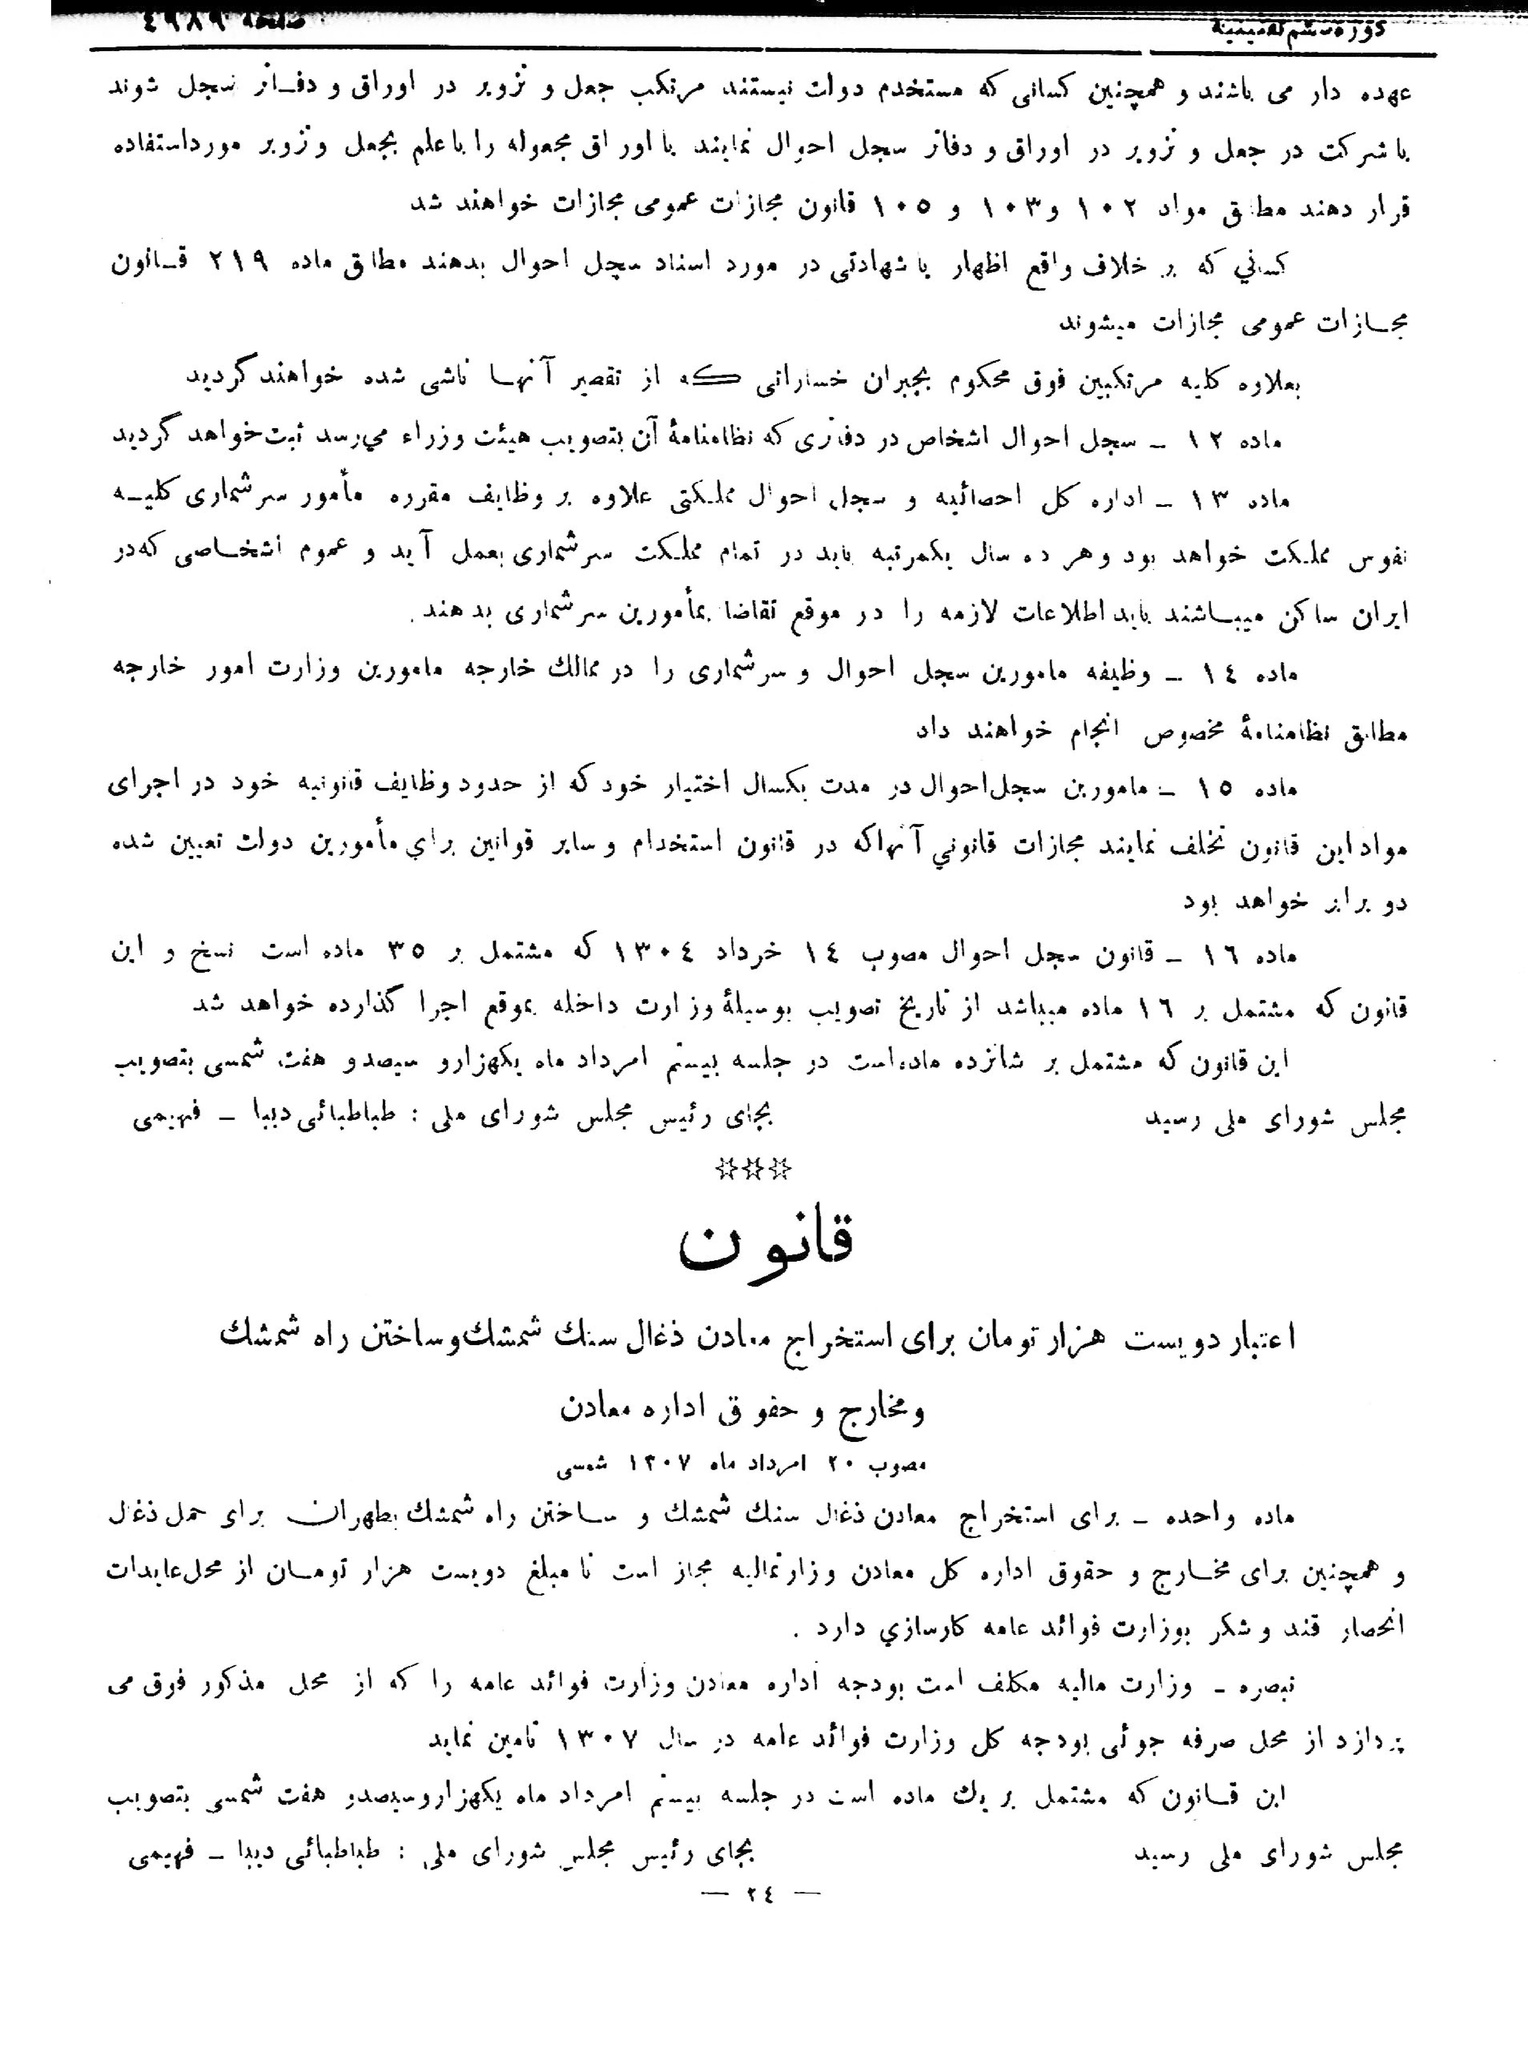 دوره ششم تقنینیه صفحه ٤٩٨٩
عهده دار می باشند و همچنین کسانی که مستخدم دولت نیستند مرتکب جعل و تزویر در اوراق و دفاتر سجل شوند
یا شرکت در جعل و تزویر در اوراق و دفاتر سجل احوال نمایند یا اوراق مجعوله را با علم بجعل و تزویر مورد استفاده
قرار دهند مطابق مواد ١٠٢ و ١٠٣ و ١٠٥ قانون مجازات عمومی مجازات خواهند شد
کسانی که بر خلاف واقع اظهار یا شهادتی در مورد اسناد سجل احوال بدهند مطابق ماده ٢١٩ قانون
مجازات عمومی مجازات میشوند
بعلاوه کلیه مرتکبین فوق محکوم بجبران خساراتی که از تقصیر آنها ناشی شده خواهند گردید
ماده ١٢ ـ سجل احوال اشخاص در دفاتری که نظامنامهٔ آن بتصویب هیئت وزراء می‌رسد ثبت خواهد گردید
ماده ١٣ ـ اداره کل احصائیه و سجل احوال مملکتی علاوه بر وظایف مقرره مأمور سرشماری کلیه
نفوس مملکت خواهد بود و هر ده سال یکمرتبه باید در تمام مملکت سرشماری بعمل آید و عموم اشخاصی که در
ایران ساکن میباشند باید اطلاعات لازمه را در موقع تقاضا بمأمورین سرشماری بدهند.
ماده ١٤ ـ وظیفه مامورین سجل احوال و سرشماری را در ممالك خارجه مامورین وزارت امور خارجه
مطابق نظامنامهٔ مخصوص انجام خواهند داد
ماده ١٥ ـ مامورین سجل احوال در مدت یکسال اختیار خود که از حدود وظایف قانونیه خود در اجرای
مواد این قانون تخلف نمایند مجازات قانونی آنها که در قانون استخدام و سایر قوانین برای مأمورین دولت تعیین شده
دو برابر خواهد بود
ماده ١٦ ـ قانون سجل احوال مصوب ١٤ خرداد ١٣٠٤ که مشتمل بر ٣٥ ماده است نسخ و این
قانون که مشتمل بر ١٦ ماده میباشد از تاریخ تصویب بوسیلهٔ وزارت داخله بموقع اجرا گذارده خواهد شد
این قانون که مشتمل بر شانزده ماده است در جلسه بیستم امرداد ماه یکهزار و سیصد و هفت شمسی بتصویب
مجلس شورای ملی رسید بجای رئیس مجلس شورای ملی : طباطبائی دیبا ـ فهیمی
☆☆☆
قانون
اعتبار دویست هزار تومان برای استخراج معادن ذغال سنك شمشك و ساختن راه شمشك
و مخارج و حقوق اداره معادن
مصوب ٢٠ امرداد ماه ١٣٠٧ شمسی
ماده واحده ـ برای استخراج معادن ذغال سنك شمشك و ساختن راه شمشك بطهران برای حمل ذغال
و همچنین برای مخارج و حقوق اداره کل معادن وزارتمالیه مجاز است تا مبلغ دویست هزار تومان از محل عایدات
انحصار قند و شکر بوزارت فوائد عامه کارسازی دارد .
تبصره ـ وزارت مالیه مکلف است بودجه اداره معادن وزارت فوائد عامه را که از محل مذکور فوق می
پردازد از محل صرفه جوئی بودجه کل وزارت فوائد عامه در سال ١٣٠٧ تامین نماید
این قانون که مشتمل بر یك ماده است در جلسه بیستم امرداد ماه یکهزار و سیصد و هفت شمسی بتصویب
مجلس شورای ملی رسید بجای رئیس مجلس شورای ملی : طباطبائی دیبا ـ فهیمی
— ٢٤ —